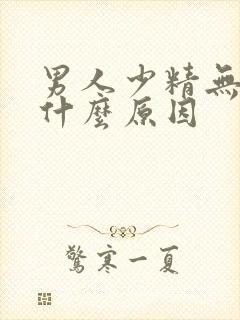 男人少精無
什麼原因
驚寒一夏